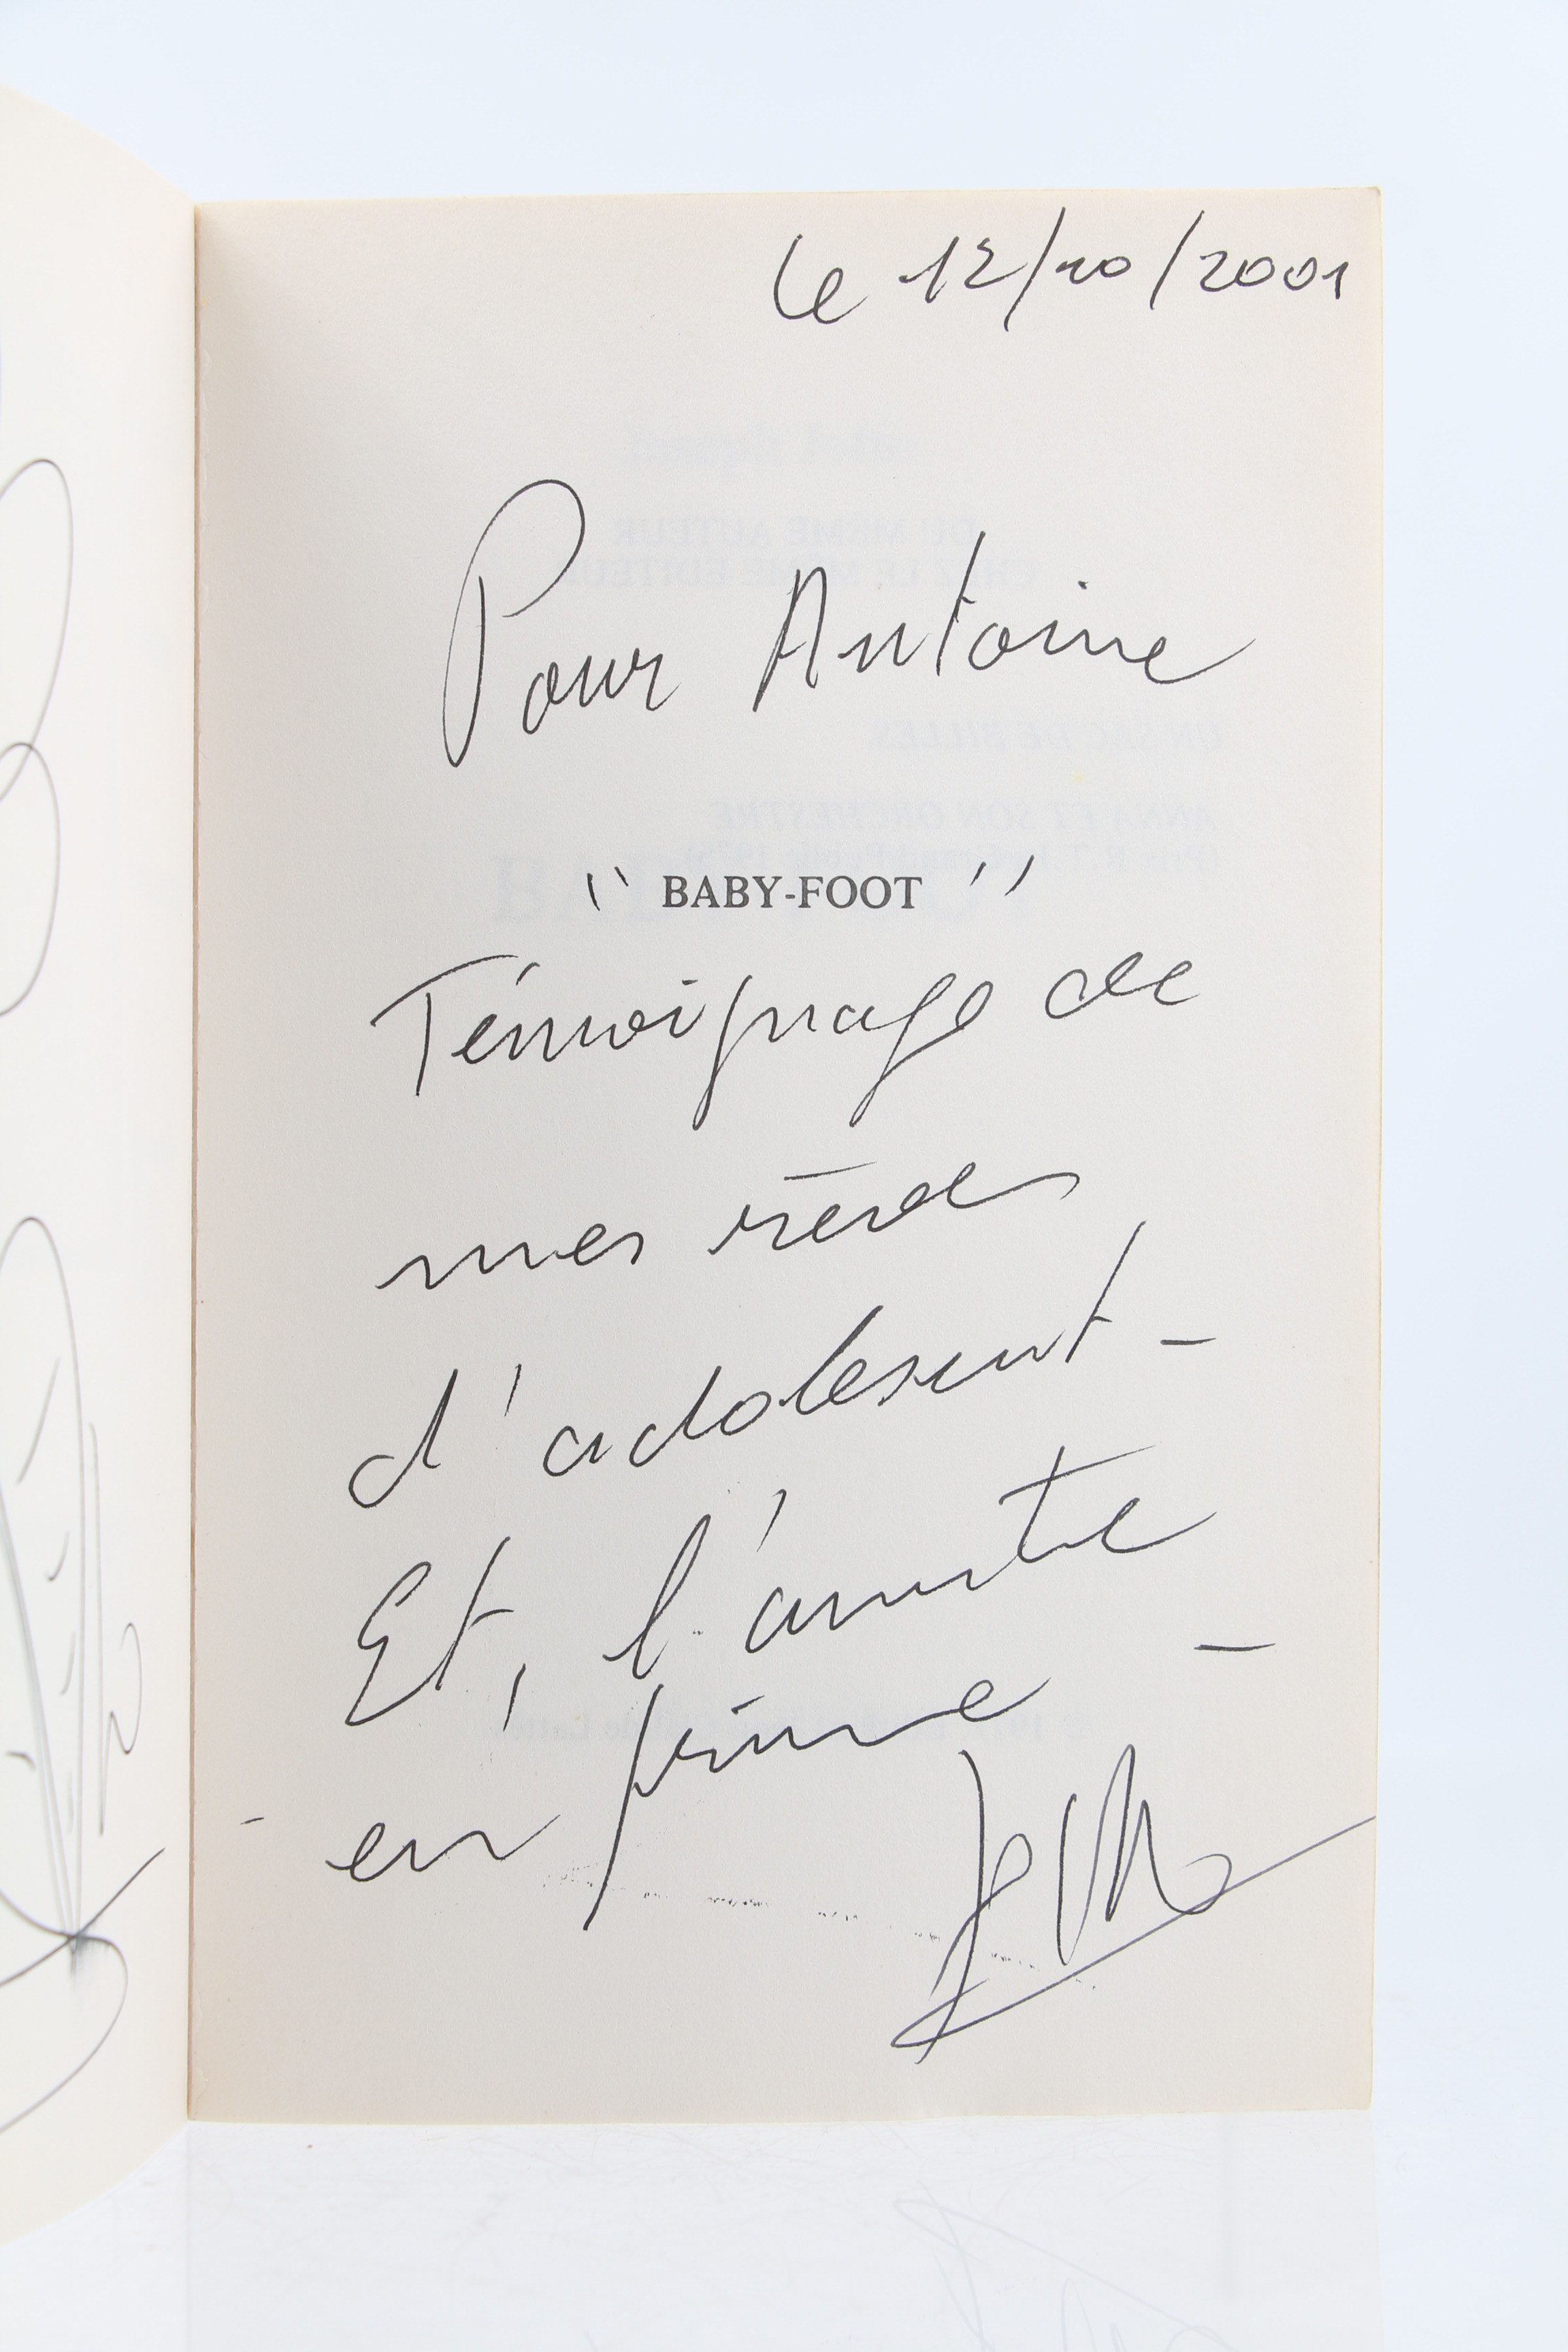 le 12/10/2001
Pour Antoine
" BABY-FOOT "
Témoignage de
mes rêves
d'adolescent -
Et, l'amitié -
en prime -